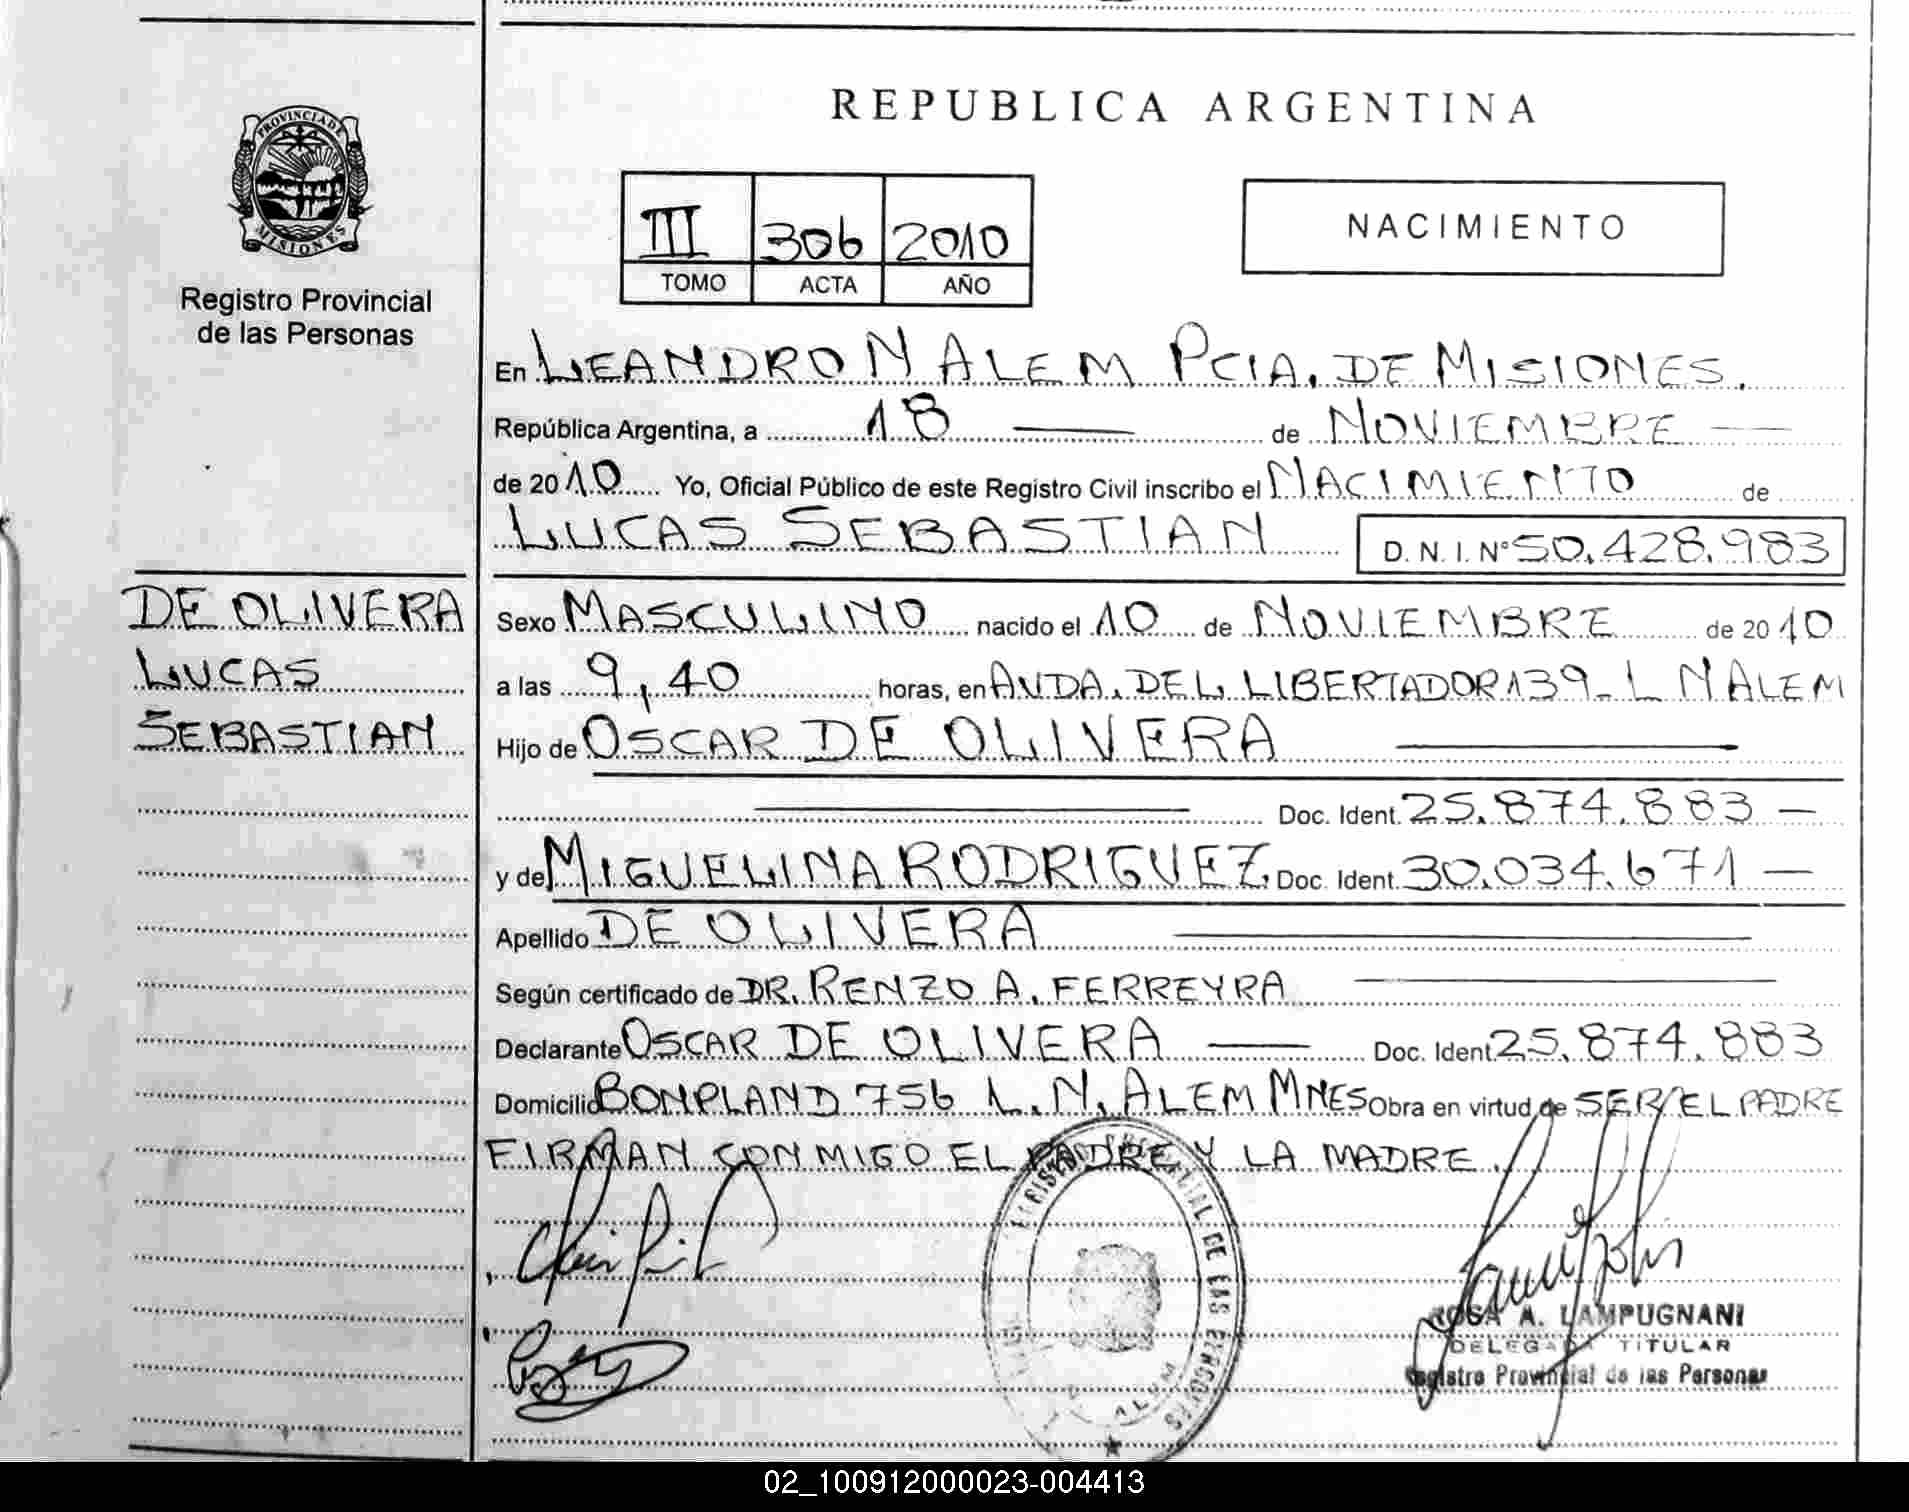 REPUBLICA ARGENTINA
PROVINCIA DE MISIONES
Registro Provincial
de las Personas
III 306 2010
TOMO ACTA AÑO
NACIMIENTO
En LEANDRO N ALEM PCIA. DE MISIONES.
República Argentina, a 18 de NOVIEMBRE
de 2010 Yo, Oficial Público de este Registro Civil inscribo el NACIMIENTO de
LUCAS SEBASTIAN D. N. I. Nº 50.428.983
DE OLIVERA
LUCAS
SEBASTIAN
Sexo MASCULINO nacido el 10 de NOVIEMBRE de 2010
a las 9,40 horas, en AVDA. DEL LIBERTADOR 139_ L N ALEM
Hijo de OSCAR DE OLIVERA
Doc. Ident. 25.874.883 —
y de MIGUELINA RODRIGUEZ Doc. Ident. 30.034.671 —
Apellido DE OLIVERA
Según certificado de DR. RENZO A. FERREYRA
Declarante OSCAR DE OLIVERA Doc. Ident 25.874.883
Domicilio BONPLAND 756 L.N. ALEM MNES Obra en virtud de SER EL PADRE
FIRMAN CONMIGO EL PADRE Y LA MADRE.
ROSA A. LAMPUGNANI
DELEGADA TITULAR
Registro Provincial de las Personas
02_100912000023-004413